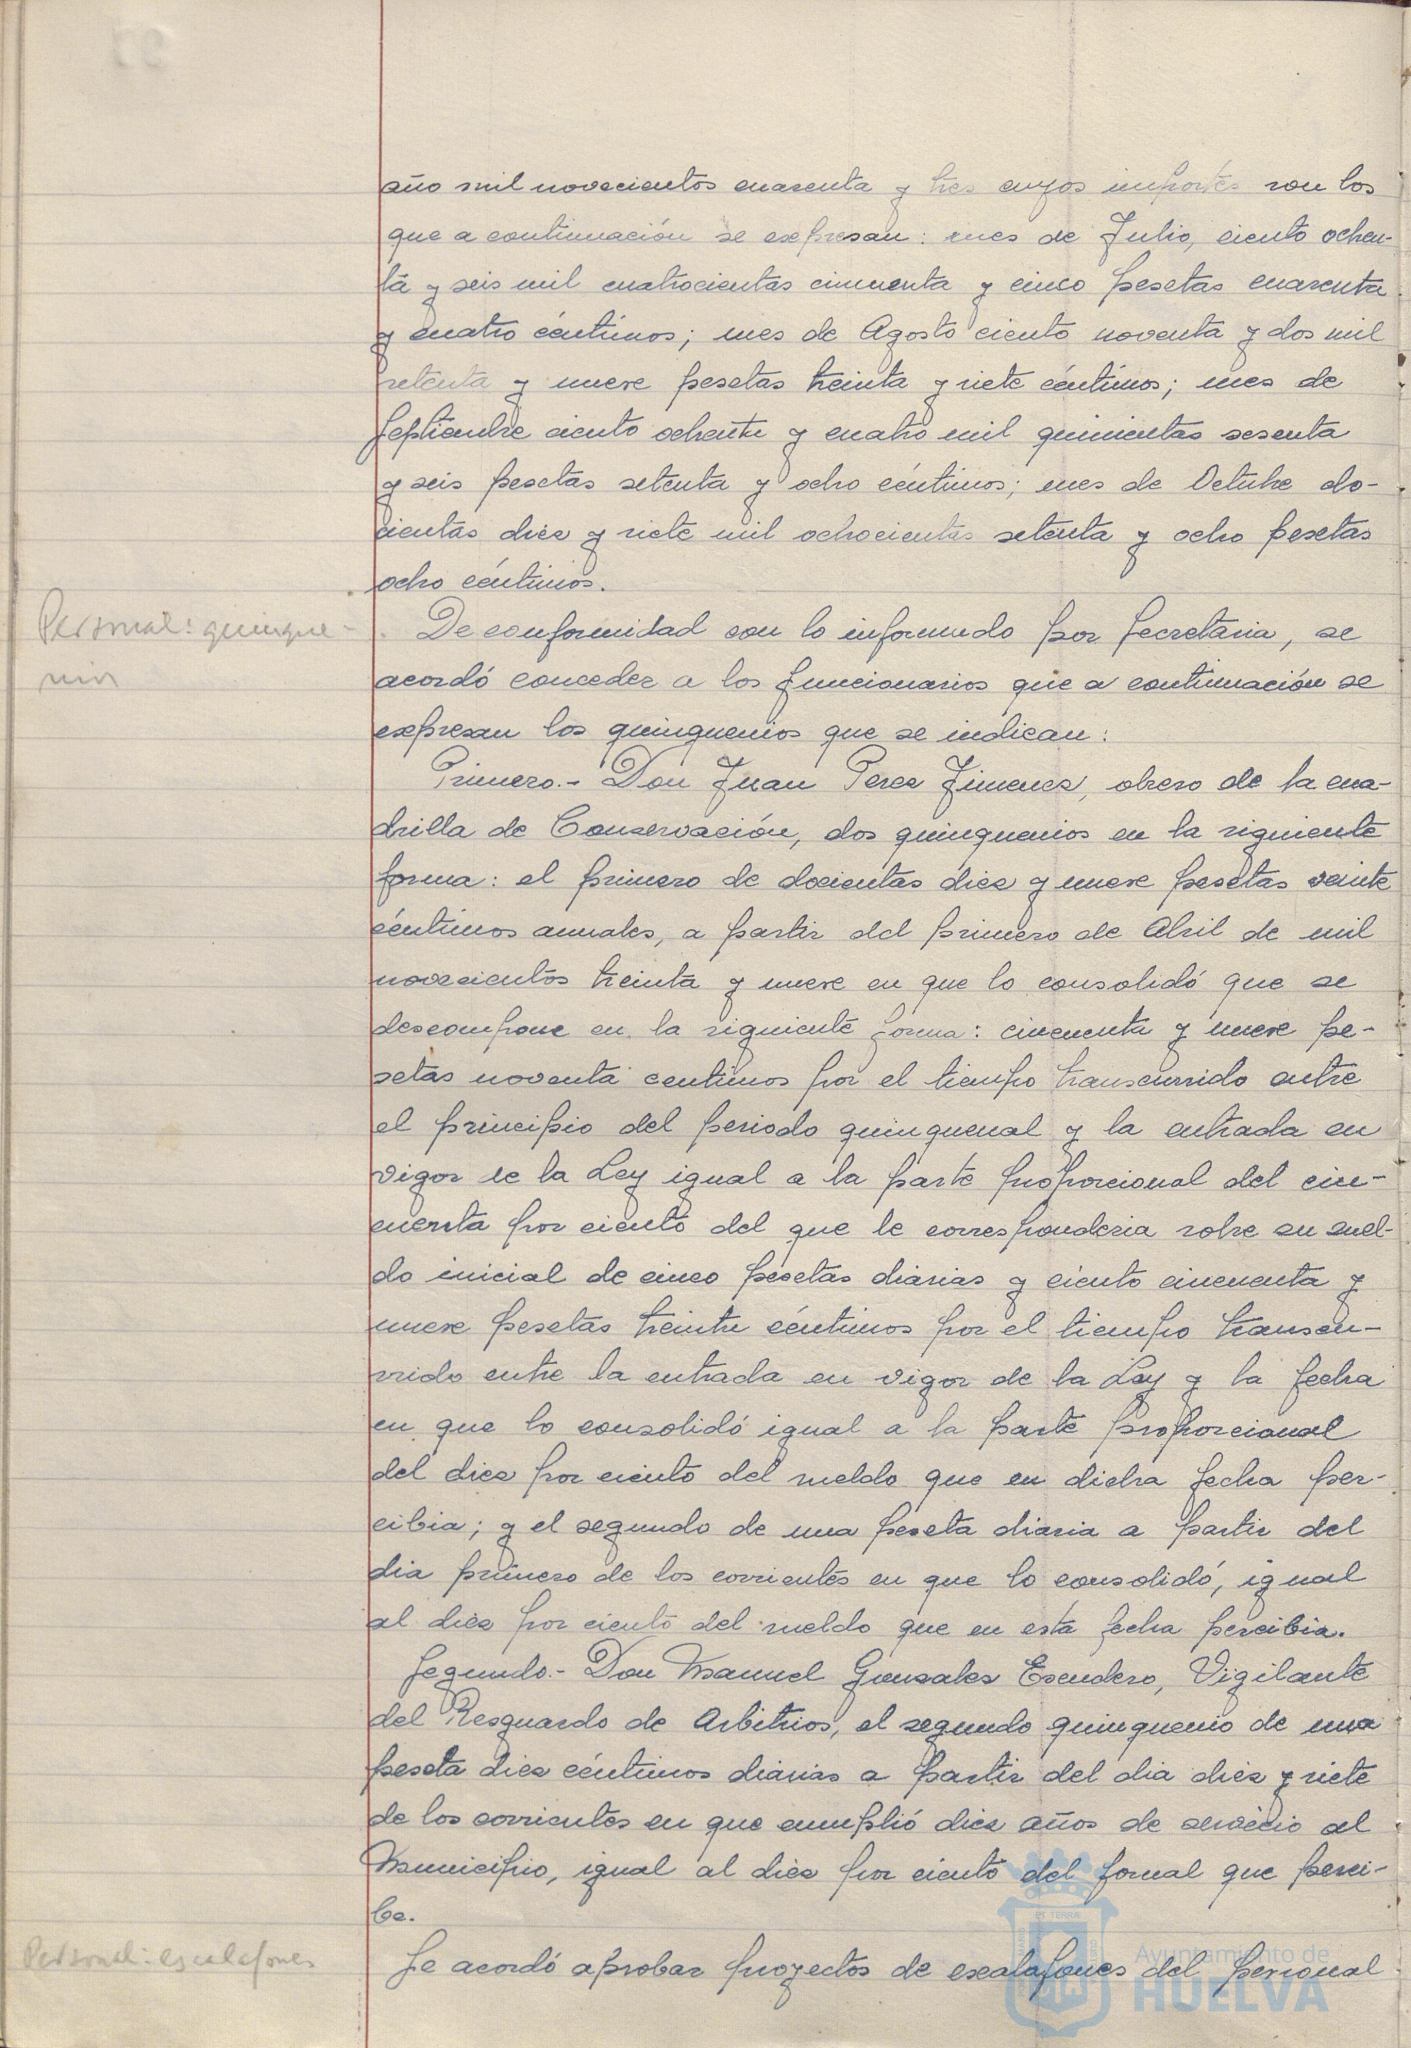 año mil novecientos cuarenta y tres cuyos importes son los
que a continuación se expresan: mes de Julio, ciento ochen-
ta y seis mil cuatrocientas cincuenta y cinco pesetas cuarenta
y cuatro céntimos; mes de Agosto ciento noventa y dos mil
setenta y nueve pesetas treinta y siete céntimos; mes de
Septiembre ciento ochenta y cuatro mil quinientas sesenta
y seis pesetas setenta y ocho céntimos; mes de Octubre do-
cientas diez y siete mil ochocientas setenta y ocho pesetas
ocho céntimos.
Personal: quinque-
nios
De conformidad con lo informado por Secretaria, se
acordó conceder a los funcionarios que a continuación se
expresan los quinquenios que se indican:
Primero.- Don Juan Perez Jimenez, obrero de la cua-
drilla de Conservación, dos quinquenios en la siguiente
forma: el primero de docientas diez y nueve pesetas veinte
céntimos anuales, a partir del primero de Abril de mil
novecientos treinta y nueve en que lo consolidó que se
descompone en la siguiente forma: cincuenta y nueve pe-
setas noventa centimos por el tiempo transcurrido entre
el principio del periodo quinquenal y la entrada en
vigor de la Ley igual a la parte proporcional del cin-
cuenta por ciento del que le corresponderia sobre su suel-
do inicial de cinco pesetas diarias y ciento cincuenta y
nueve pesetas treinta céntimos por el tiempo transcu-
rrido entre la entrada en vigor de la Ley y la fecha
en que lo consolidó igual a la parte proporcional
del diez por ciento del sueldo que en dicha fecha per-
cibia; y el segundo de una peseta diaria a partir del
dia primero de los corrientes en que lo consolidó, igual
al diez por ciento del sueldo que en esta fecha percibia.
Segundo.- Don Manuel Gonzales Escudero, Vigilante
del Resguardo de Arbitrios, el segundo quinquenio de una
peseta diez céntimos diarias a partir del dia diez y siete
de los corrientes en que cumplió diez años de servicio al
Municipio, igual al diez por ciento del jornal que perci-
be.
Personal: escalafones
Se acordó aprobar proyectos de escalafones del personal
Ayuntamiento de
HUELVA